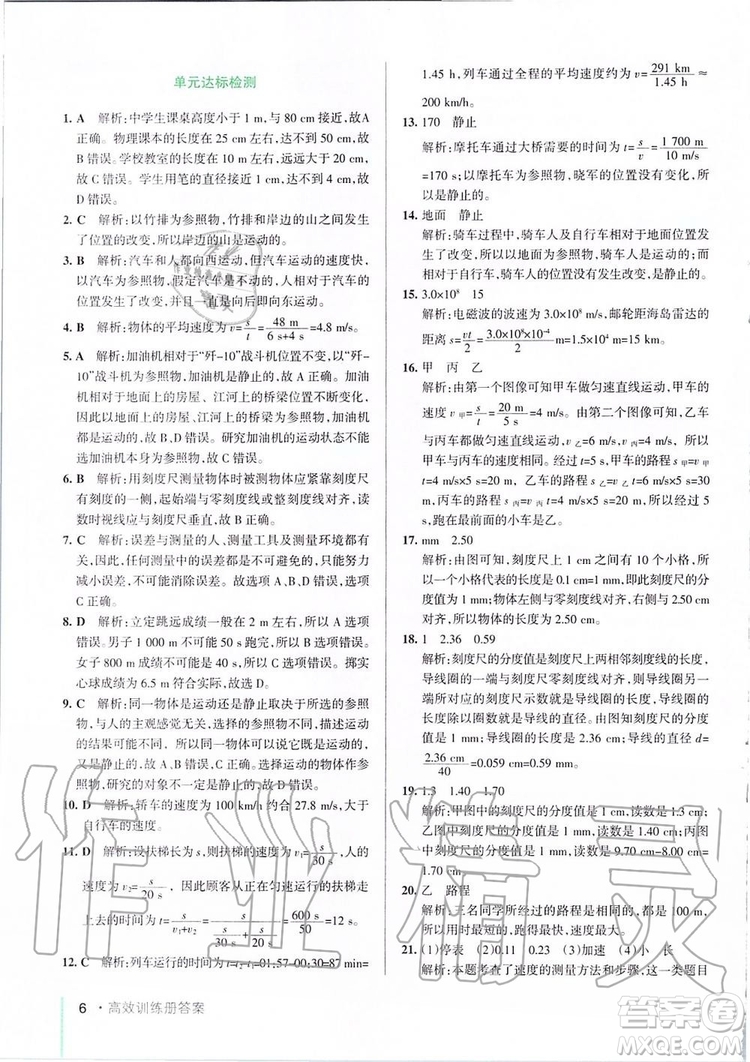 单元达标检测
1. A 解析:中学生课桌高度小于 1 m,与 80 cm 接近,故A
正确。物理课本的长度在 25 cm 左右,不到 50 cm,故
B 错误。学校教室的长度在 10 m 左右,远远大于
20 cm,故 C 错误。学生用笔的直径接近 1 cm,故 D
错误。
2. C 解析:以竹排为参照物,竹排和岸边的山之间发生
了位置的改变,所以岸边的山是运动的。
3. B 解析:汽车和人都向西运动,但汽车运动的速度快,
以汽车为参照物,假定汽车不动,人相对于汽车的位置
发生了改变,并且一直在后退即向东运动。
4. B 解析:物体的平均速度为 v=s/t=48 m/(6 s+4 s)=4.8 m/s。
5. A 解析:加油机相对于“歼-10”战斗机位置不变,以“歼-
10”战斗机为参照物,加油机是静止的,故 A 正确。以
地面上的房屋、江河上的桥梁为参照物,加油机相对于
地面上的房屋、江河上的桥梁的位置不断变化,加油机
都是运动的,故 B、C 错误。研究加油机的运动状态不能
选加油机本身为参照物,故 D 错误。
6. B 解析:用刻度尺测量物体时被测物体应紧靠刻度尺
有刻度的一侧,起始端与零刻度线或整刻度线对齐,读
数时视线应与刻度尺垂直,故 B 正确。
7. C 解析:误差与测量的人、测量工具及测量环境都有
关,在任何测量中误差都是不可避免的,我们只能努力
减小误差,不能消除误差,故选项 A、B、D 错误,选项
C 正确。
8. D 解析:立定跳远成绩一般在 2 m 左右,故选项 A
错误。男子 1 000 m 不可能 50 s 跑完,故选项 B 错误。
女子 800 m 成绩不可能是 40 s,故选项 C 错误。掷实
心球成绩为 6.5 m 符合实际,故选项 D 正确。
9. C 解析:同一物体是运动还是静止取决于所选的参照
物,与人的主观感觉无关。选择不同的参照物,描述运动
的结果可能不同,同一物体可能既是运动的,
又是静止的,故 C 正确,A、B 错误。运动和静止是相对
的,研究的对象不一定是静止的,故 D 错误。
10. D 解析:轿车的速度为 100 km/h,约合 27.8 m/s,大于
自行车的速度。
11. D 解析:设扶梯长为 s,则扶梯的速度为 v₁=s/30 s,人的
速度为 v₂=s/20 s,因此顾客从正在匀速运行的扶梯走
上去的时间为 t=s/(v₁+v₂)=s/(s/30 s+s/20 s)=600 s/50=12 s。
12. C 解析:列车运行的时间为 t=01:57-00:30=87 min=
1.45 h,列车通过全程的平均速度约为 v=s/t=291 km/1.45 h≈
200 km/h。
13. 170 静止
解析:摩托车通过大桥需要的时间为 t=s/v=1 700 m/10 m/s
=170 s;以摩托车为参照物,晓军的位置没有变化,所
以晓军是静止的。
14. 地面 静止
解析:骑车过程中,骑车人及自行车相对于地面的位置
发生了变化,所以以地面为参照物,骑车人是运动的;
相对于自行车,骑车人的位置没有变化,骑车人是
静止的。
15. 3.0×10⁸ 15
解析:电磁波的波速为 3.0×10⁸ m/s,邮轮距海岛雷达的
距离 s=vt/2=3.0×10⁸ m/s×10⁻⁴ s/2=15 000 m=15 km。
16. 甲 丙 乙
解析:由第一个图像可知甲车做匀速直线运动,甲车的
速度 v甲=s/t=20 m/5 s=4 m/s。由第二个图像可知,乙车
与丙车都做匀速直线运动,v乙=6 m/s,v丙=5 m/s,所以
甲车与丙车运动方向相同。甲车的路程 s甲=v甲t=
4 m/s×5 s=20 m,乙车的路程 s乙=v乙t=6 m/s×5 s=
30 m,丙车的路程 s丙=v丙t=5 m/s×5 s=25 m,s乙>s丙>
s甲,跑在最前面的小车是乙车。
17. mm 2.50
解析:由图可知,刻度尺上 1 cm 之间有 10 个小格,所以
一个小格代表的长度是 0.1 cm=1 mm,即刻度尺的分度
值为 1 mm;物体左侧与零刻度线对齐,右侧与 2.50 cm
对齐,所以物体的长度为 2.50 cm。
18. 1 2.36 0.59
解析:刻度尺的分度值是尺上两相邻刻度线的长度,
导线圈的一端与刻度尺零刻度线对齐,导线圈的另一
端对应的刻度尺示数就是导线圈的长度,导线圈的长
度除以圈数是导线的直径,导线的直径 d=
2.36 cm/40=0.059 cm=0.59 mm。
19. 1.3 1.40 1.70
解析:甲图中的刻度尺的分度值是 1 cm,读数是 1.3 cm;
乙图中刻度尺的分度值是 1 mm,读数是 1.40 cm;丙图
中刻度尺的分度值是 1 mm,读数是 9.70 cm-8.00 cm=
1.70 cm。
20. 乙 路程
解析:三名同学所经过的路程相等,但乙所用的时间最
短,所以乙的平均速度最大。
21. (1)停表 (2)0.11 0.23 (3)加速 (4)小 长
解析:本题考查了速度的测量方法和步骤,这一类问题
6 · 高效训练册答案
作业精灵
答案圈
MXQE.COM